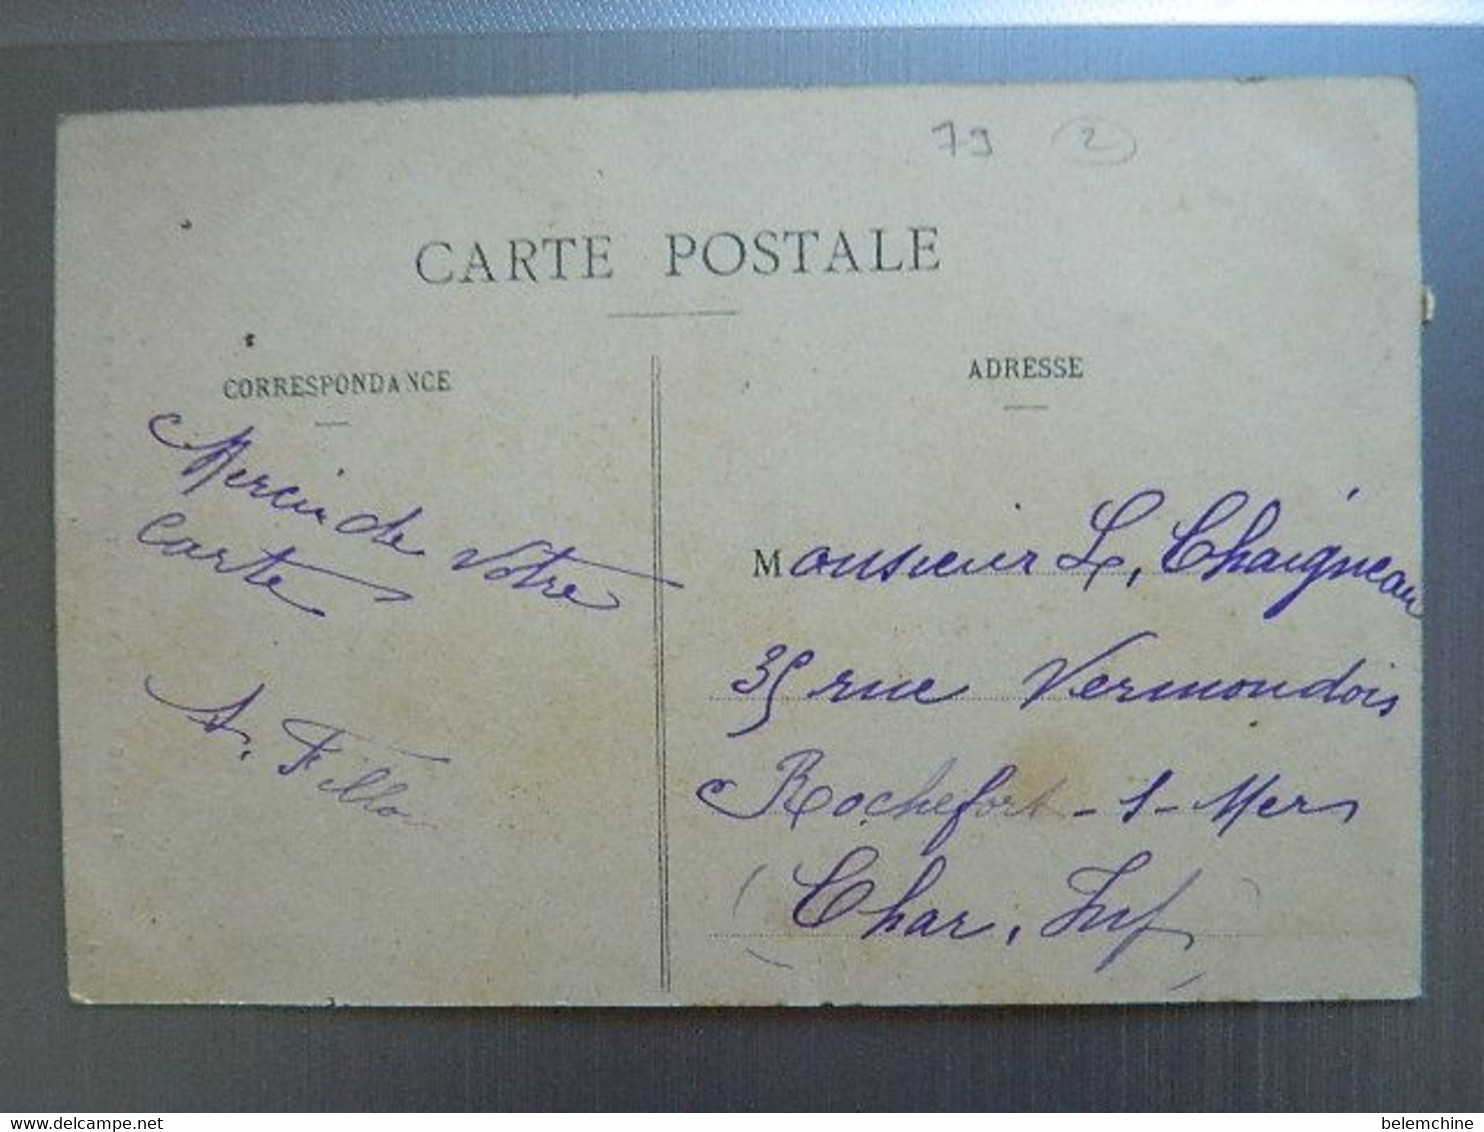 79 2
CARTE POSTALE
CORRESPONDANCE
Merci de votre
carte
A. Fillon
ADRESSE
Monsieur L. Chaigneau
35 rue Vermondois
Rochefort-s-Mer
(Char. Inf)
delcampe.net
belemchine